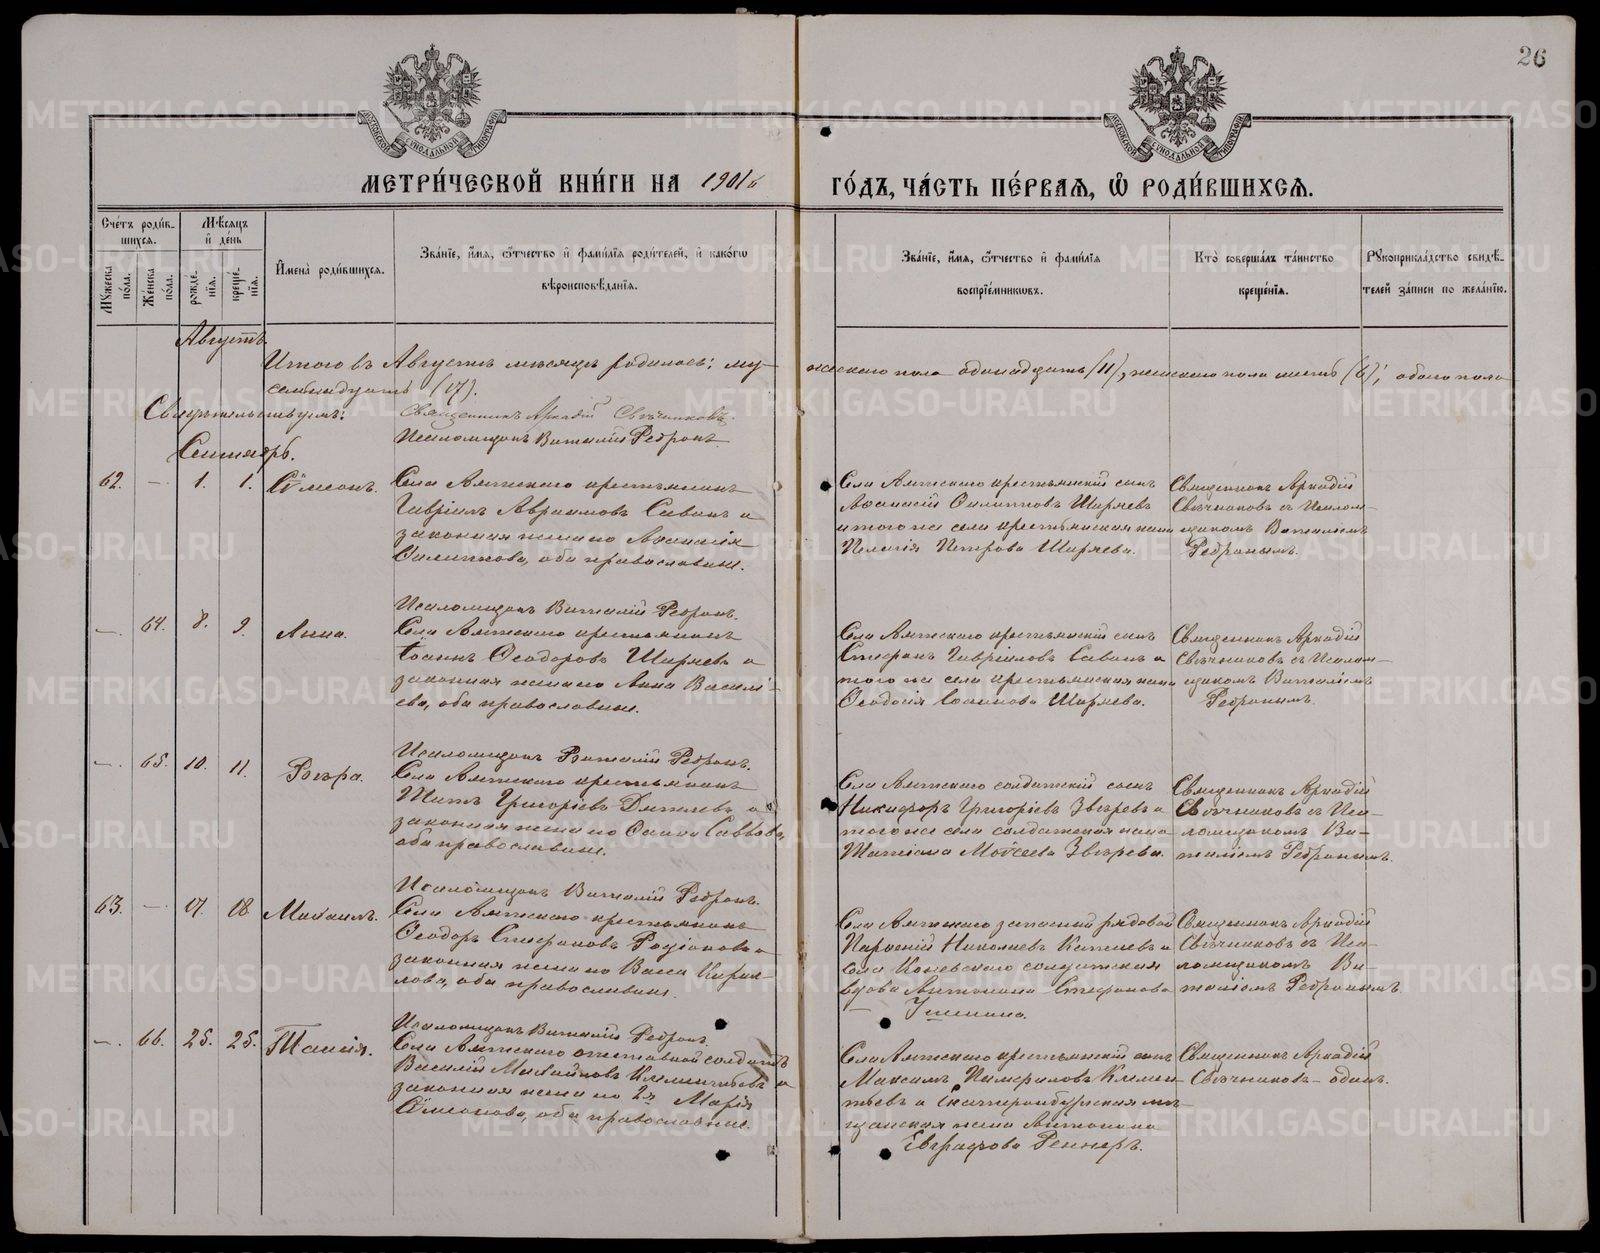 26
МЕТРИ́ЧЕСКОЙ КНИ́ГИ НА 1901й ГО́ДЪ, ЧА́СТЬ ПЕ́РВАЯ, Ѽ РОДИ́ВШИХСЯ.
Сче́тъ роди́в-
шихся.
Мꙋжеска по́ла.
Же́нска по́ла.
Мѣ́сяцъ
и҆ де́нь
рожде́нїя.
креще́нїя.
И҆мена̀ роди́вшихся.
Зва́нїе, и҆́мя, ѻ҆́тчество и҆ фами́лїя роди́телей, и҆ како́гѡ
вѣроисповѣ́данїя.
Зва́нїе, и҆́мя, ѻ҆́тчество и҆ фами́лїя
воспрїе́мникѡвъ.
Кто̀ соверша́лъ та́инство
креще́нїя.
Рꙋкоприкла́дство свидѣ́-
телей за́писи по жела́нїю.
Августъ.
Итого въ Августѣ мѣсяцѣ родилось: му-
жескаго пола одинадцать (11), женскаго пола шесть (6), обоего пола
семнадцать (17).
Свидѣтельствуемъ: Священникъ Аркадій Свѣчниковъ.
Псаломщикъ Виталій Ребринъ
Сентябрь.
62. — 1. 1. Сѵмеонъ.
Села Аятскаго крестьянинъ
Гавріилъ Авраамовъ Савинъ и
законная жена его Аѳанасія
Филиппова, оба православные.
Села Аятскаго крестьянскій сынъ
Аѳанасій Филипповъ Ширяевъ
и того же села крестьянская жена
Пелагія Петрова Ширяева.
Священникъ Аркадій
Свѣчниковъ съ Псалом-
щикомъ Виталіемъ
Ребринымъ.
Псаломщикъ Виталій Ребринъ.
—. 64. 8. 9. Анна.
Села Аятскаго крестьянинъ
Іоаннъ Ѳеодоровъ Ширяевъ и
законная жена его Анна Василь-
ева, оба православные.
Села Аятскаго крестьянскій сынъ
Стефанъ Гавріиловъ Савинъ и
того же села крестьянская жена
Ѳеодосія Іоаннова Ширяева.
Священникъ Аркадій
Свѣчниковъ съ Псалом-
щикомъ Виталіемъ
Ребринымъ.
Псаломщикъ Виталій Ребринъ.
—. 65. 10. 11. Вѣра.
Села Аятскаго крестьянинъ
Титъ Григорьевъ Дятлевъ и
законная жена его Саввова,
оба православные.
Села Аятскаго солдатскій сынъ
Никифоръ Григорьевъ Звѣревъ и
того же села солдатская жена
Татіана Моѵсеева Звѣрева.
Священникъ Аркадій
Свѣчниковъ съ Пса-
ломщикомъ Ви-
таліемъ Ребринымъ.
Псаломщикъ Виталій Ребринъ.
63. — 17. 18 Михаилъ.
Села Аятскаго крестьянинъ
Ѳеодоръ Стефановъ Родіоновъ и
законная жена его Васса Кирил-
лова, оба православные.
Села Аятскаго запасный рядовой
Парѳеній Николаевъ Кателевъ и
села Коневскаго солдатская
вдова Антонина Стефанова
Ушенина.
Священникъ Аркадій
Свѣчниковъ съ Пса-
ломщикомъ Ви-
таліемъ Ребринымъ.
Псаломщикъ Виталій Ребринъ.
—. 66. 25. 25. Таисія.
Села Аятскаго отставной солдатъ
Василій Михайловъ Климентьевъ и
законная жена его 2я Марія
Сѵмеонова, оба православные.
Села Аятскаго крестьянскій сынъ
Максимъ Памфиловъ Климен-
тьевъ и Екатеринбургская мѣ-
щанская жена Антонина
Евграфова Реннеръ.
Священникъ Аркадій
Свѣчниковъ — одинъ.
METRIKI.GASO-URAL.RU